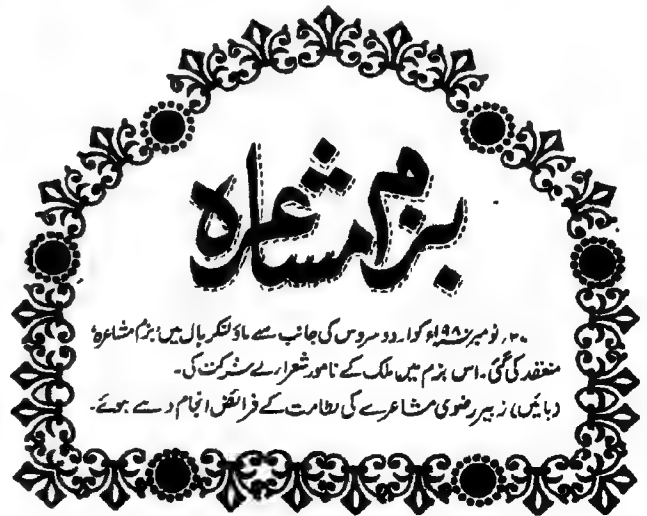 بزم مشاعرہ
۲۰؍ نومبر ۱۹۸۰ء کو اردو سروس کی جانب سے ماؤلنکر ہال میں ’بزم مشاعرہ‘
منعقد کی گئی۔ اس بزم میں ملک کے نامور شعراء نے شرکت کی۔
(بائیں) زبیر رضوی مشاعرے کی نظامت کے فرائض انجام دیتے ہوئے۔